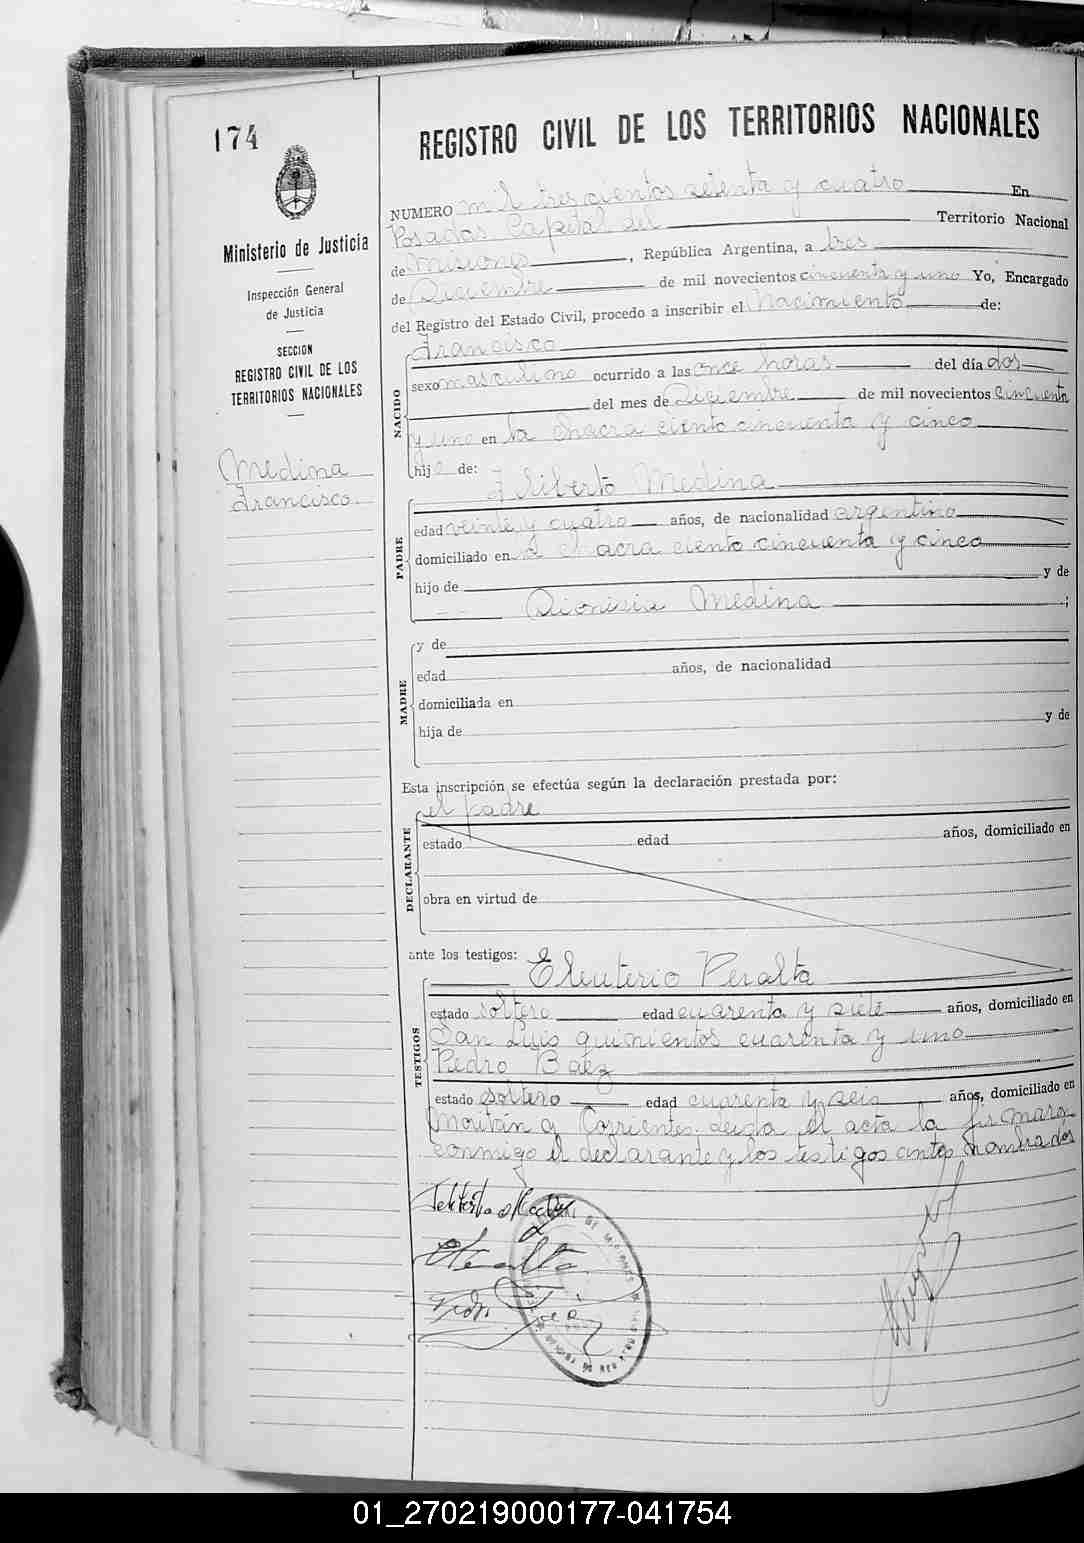 174
REGISTRO CIVIL DE LOS TERRITORIOS NACIONALES
Ministerio de Justicia
Inspección General
de Justicia
SECCION
REGISTRO CIVIL DE LOS
TERRITORIOS NACIONALES
Medina
Francisco
NUMERO mil trescientos setenta y cuatro En
Posadas Capital del Territorio Nacional
de Misiones, República Argentina, a tres
de Diciembre de mil novecientos cincuenta y uno Yo, Encargado
del Registro del Estado Civil, procedo a inscribir el Nacimiento de:
NACIDO
Francisco
sexo masculino ocurrido a las once horas del día dos
del mes de Diciembre de mil novecientos cincuenta
y uno en la chacra ciento cincuenta y cinco
hijo de:
PADRE
Filiberto Medina
edad veinte y cuatro años, de nacionalidad argentino
domiciliado en chacra ciento cincuenta y cinco
hijo de y de
Dionisia Medina ;
MADRE
y de
edad años, de nacionalidad
domiciliada en
hija de y de
Esta inscripción se efectúa según la declaración prestada por:
DECLARANTE
el padre
estado edad años, domiciliado en
obra en virtud de
ante los testigos:
TESTIGOS
Eleuterio Peralta
estado soltero edad cuarenta y siete años, domiciliado en
San Luis quinientos cuarenta y uno
Pedro Baez
estado soltero edad cuarenta y seis años, domiciliado en
y Corrientes. Leida el acta la firmaron
conmigo el declarante y los testigos antes nombrados
01_270219000177-041754